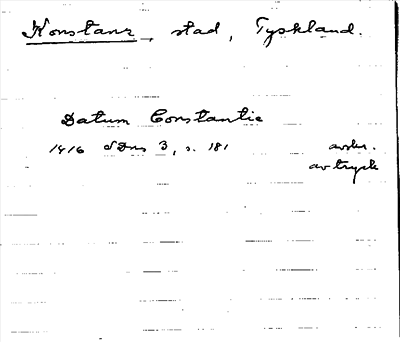 Konstanz, stad, Tyskland.
Datum Constantie
1416 SDns 3, s. 181 avskr.
avtryck